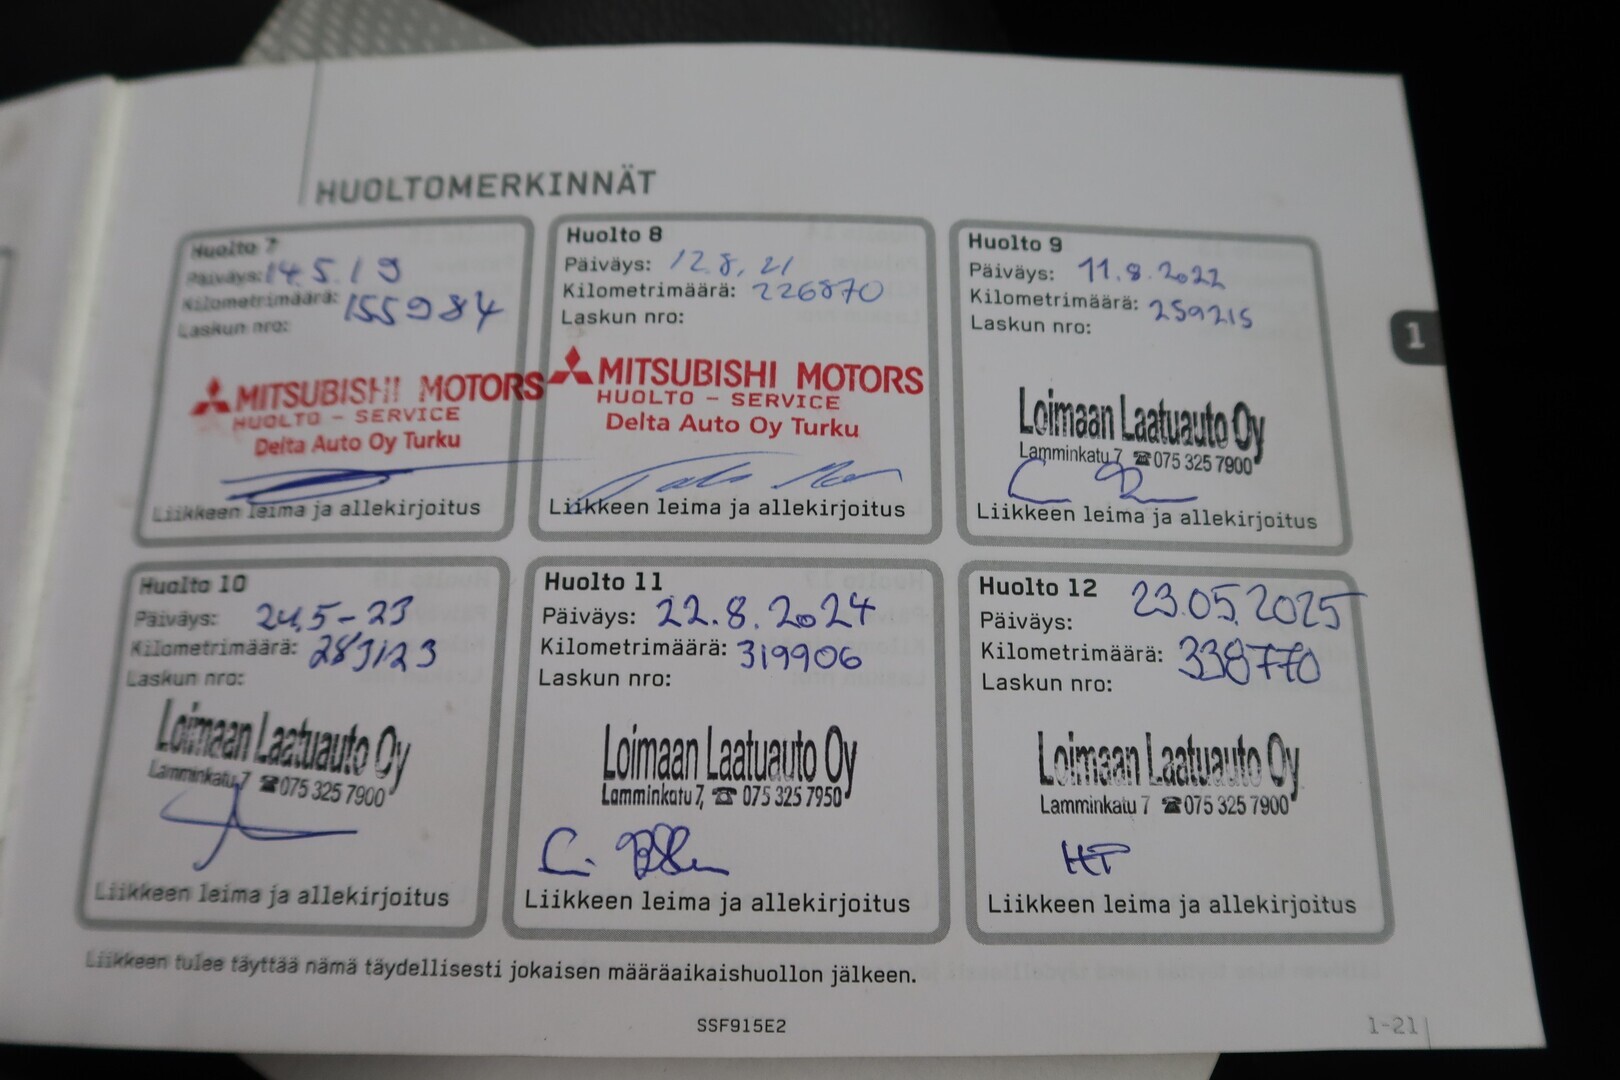 HUOLTOMERKINNÄT
Huolto 7
Päiväys: 14.5.19
Kilometrimäärä: 155984
Laskun nro:
MITSUBISHI MOTORS
HUOLTO - SERVICE
Delta Auto Oy Turku
Liikkeen leima ja allekirjoitus
Huolto 8
Päiväys: 12.8.21
Kilometrimäärä: 226870
Laskun nro:
MITSUBISHI MOTORS
HUOLTO - SERVICE
Delta Auto Oy Turku
Liikkeen leima ja allekirjoitus
Huolto 9
Päiväys: 11.8.2022
Kilometrimäärä: 259215
Laskun nro:
Loimaan Laatuauto Oy
Lamminkatu 7 ☎ 075 325 7900
Liikkeen leima ja allekirjoitus
1
Huolto 10
Päiväys: 24.5-23
Kilometrimäärä: 283123
Laskun nro:
Loimaan Laatuauto Oy
Lamminkatu 7 ☎ 075 325 7900
Liikkeen leima ja allekirjoitus
Huolto 11
Päiväys: 22.8.2024
Kilometrimäärä: 319906
Laskun nro:
Loimaan Laatuauto Oy
Lamminkatu 7, ☎ 075 325 7950
Liikkeen leima ja allekirjoitus
Huolto 12
Päiväys: 23.05.2025
Kilometrimäärä: 338770
Laskun nro:
Loimaan Laatuauto Oy
Lamminkatu 7 ☎ 075 325 7900
HP
Liikkeen leima ja allekirjoitus
Liikkeen tulee täyttää nämä täydellisesti jokaisen määräaikaishuollon jälkeen.
SSF915E2
1-21